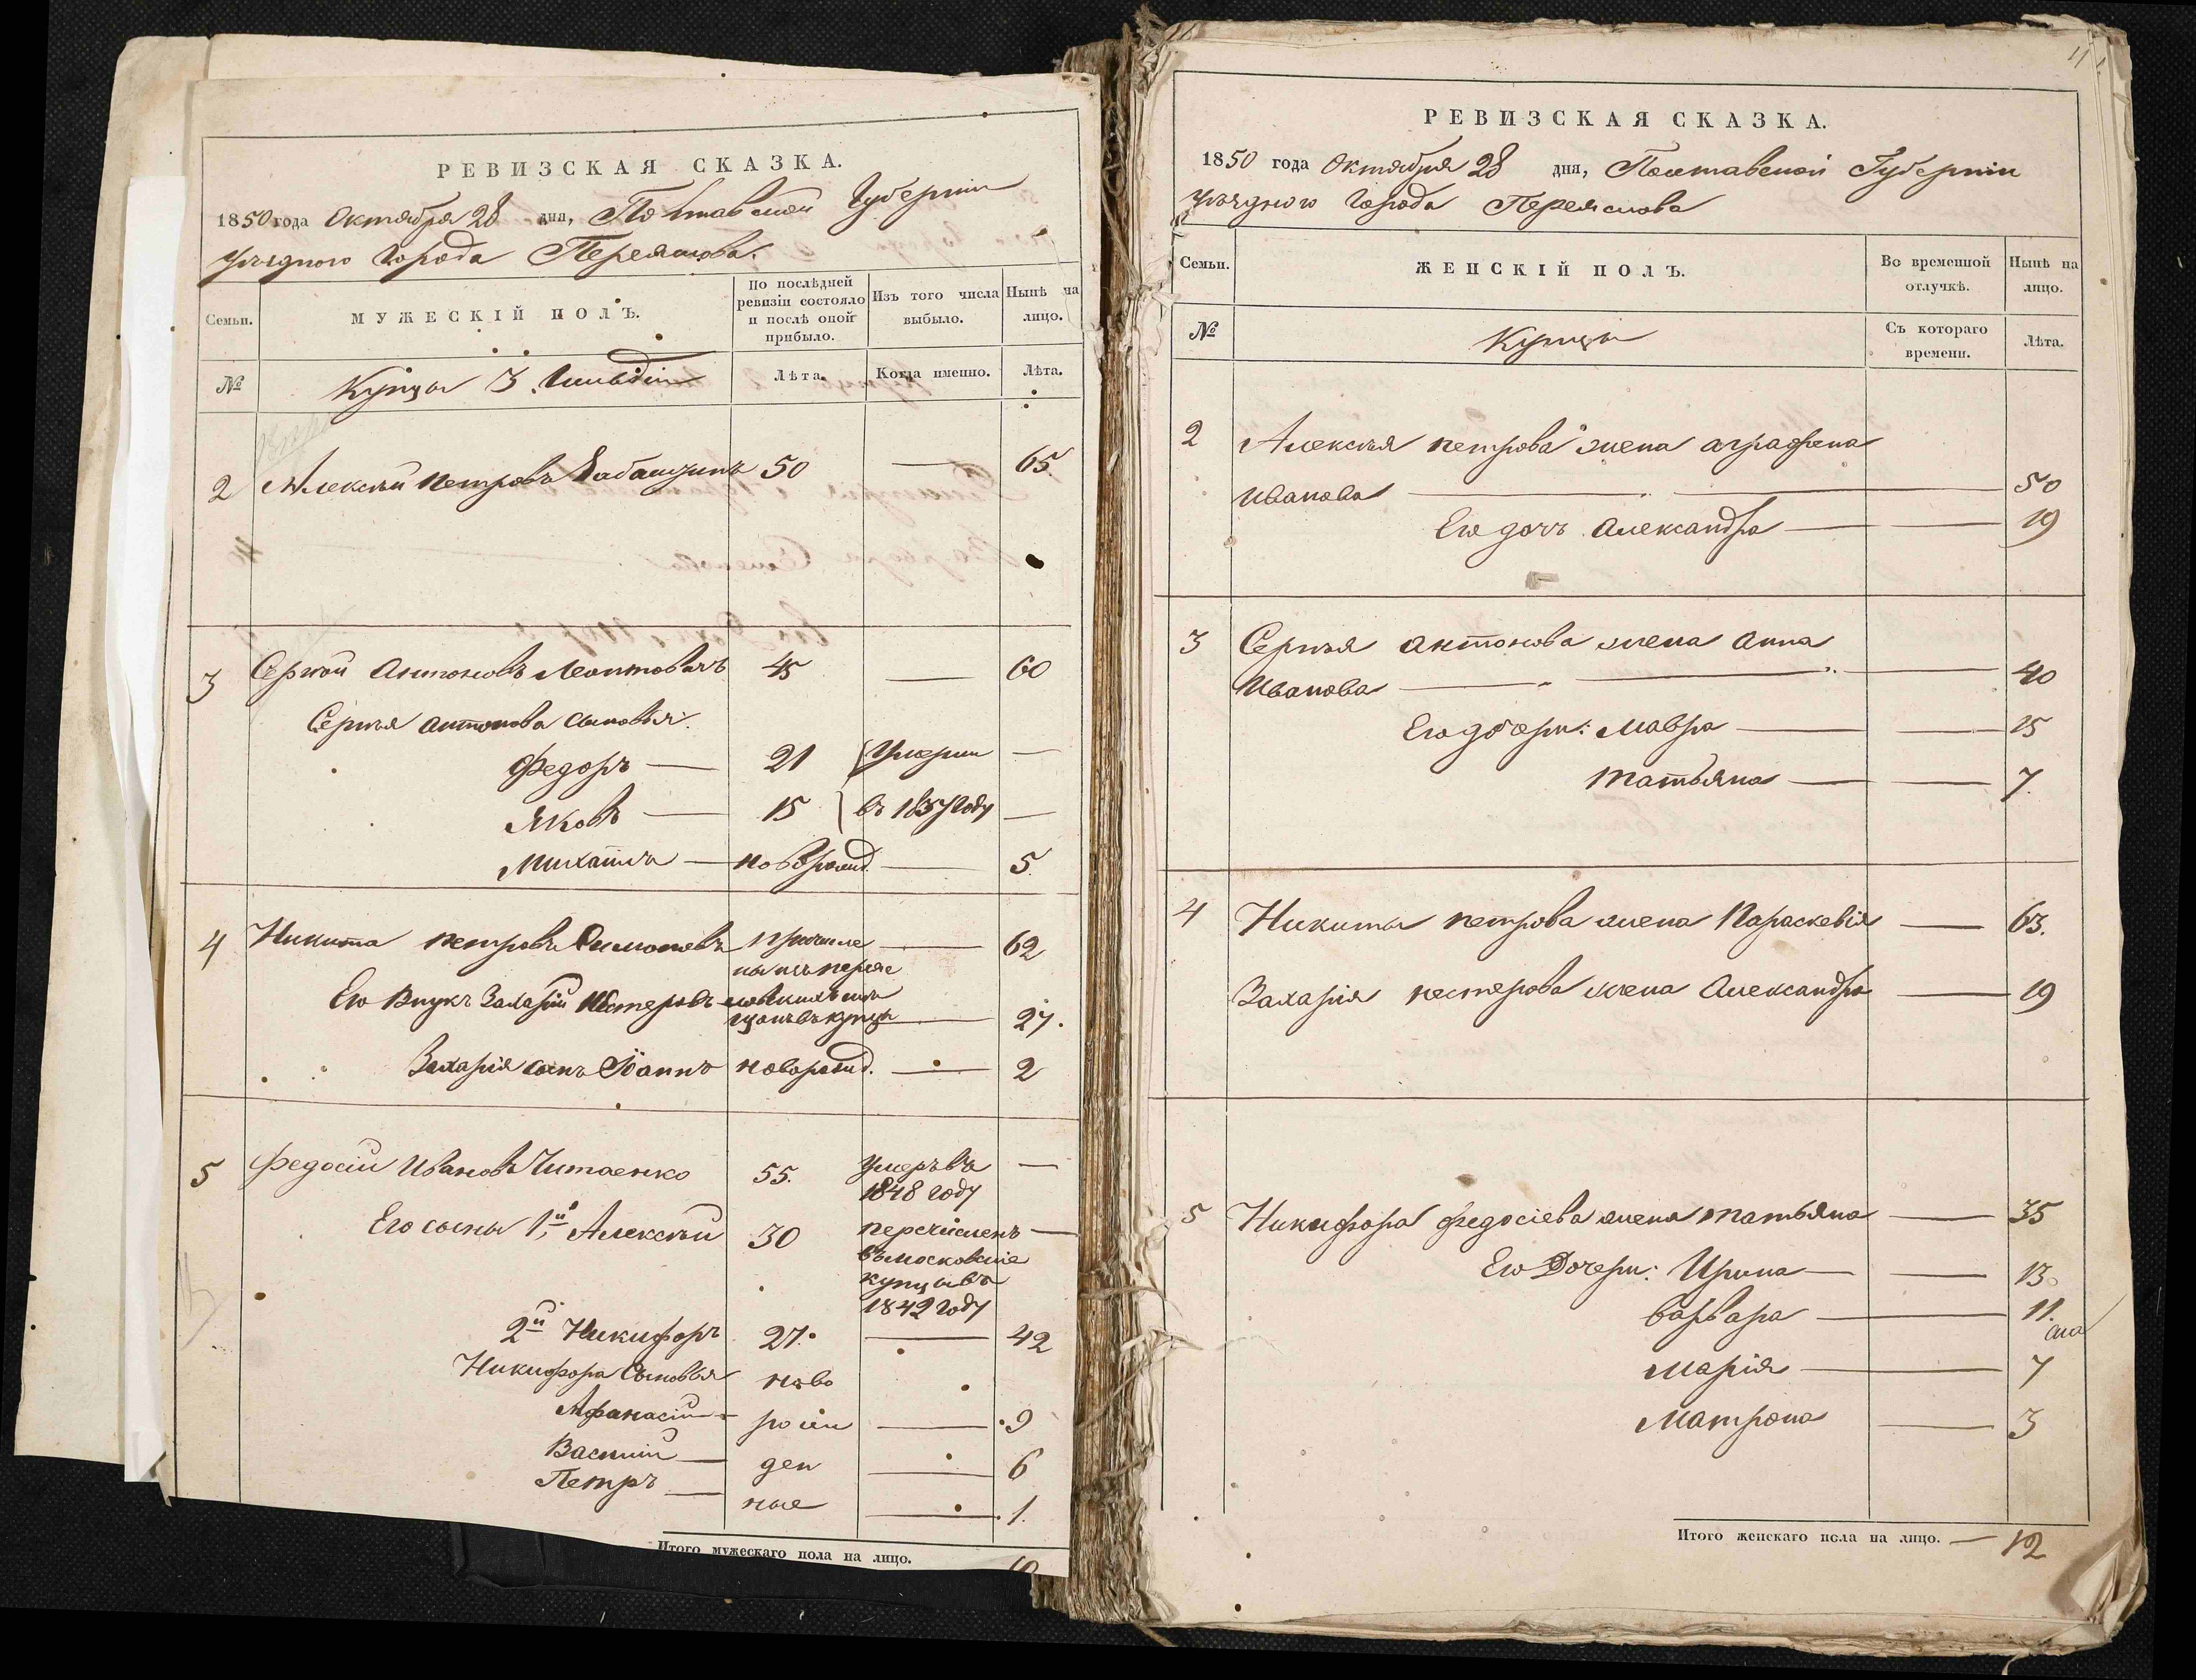 РЕВИЗСКАЯ СКАЗКА.
1850 года Октября 28 дня, Полтавской Губерніи
уѣзднаго Города Переяслова.
Семьи.
МУЖЕСКІЙ ПОЛЪ.
По послѣдней ревизіи состояло и послѣ оной прибыло.
Изъ того числа выбыло.
Нынѣ на лицо.
№
Купцы 3. Гильдіи
Лѣта.
Когда именно.
Лѣта.
2 Алексѣй Петровъ 50 — 65
3 Сергѣй Антоновъ Леонтовичъ 45 — 60
Сергѣя Антонова Сыновья:
Федоръ — 21 Умерли —
Яковъ — 15 въ 1837 Году —
Михаилъ — новорожд. — 5.
4 Никита Петровъ Симоновъ причисле — 62
ны изъ переяс
Его Внукъ Захарій Нестеровъ ловскихъ мѣ
щанъ въ купцы — 27.
Захарія сынъ Іоаннъ новорожд. — 2
5 Федосій Ивановъ Читаенко 55. умеръ въ —
1848 году
Его сыны 1й, Алексѣй 30 перечисленъ —
въ московскіе
купцы въ
1842 году
2й Никифоръ 27. — 42
Никифора Сыновья ново
Афанасій — рож — 9
Василій — ден — 6
Петръ — ные — 1.
Итого мужескаго пола на лицо. 10
11
РЕВИЗСКАЯ СКАЗКА.
1850 года Октября 28 дня, Полтавской Губерніи
уѣзднаго Города Переяслова
Семьи.
ЖЕНСКІЙ ПОЛЪ.
Во временной отлучкѣ.
Нынѣ на лицо.
№
Купцы
Съ котораго времени.
Лѣта.
2 Алексѣя Петрова жена Аграфена
Иванова — — 50
Его дочь Александра — — 19
3 Сергѣя Антонова жена Анна
Иванова — — 40
Его дочери: Мавра — — 15
Татьяна — — 7.
4 Никиты Петрова жена Параскевія — 63.
Захарія Нестерова жена Александра — 19
5 Никифора Федосіева жена Татьяна — 35
Его Дочери: Ирина — — 13
Варвара — 11.
Марія — 7
Матрона — 3
Итого женскаго пола на лицо. — 12